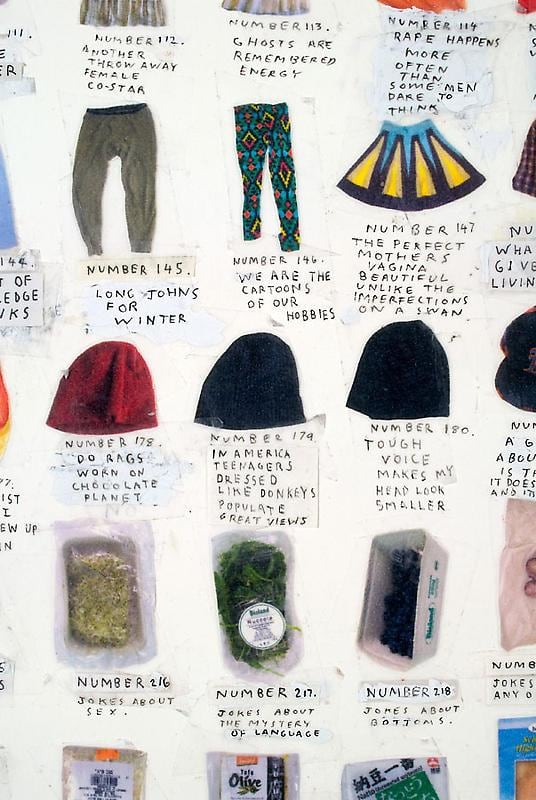 111.
NUMBER 112.
ANOTHER
THROW AWAY
FEMALE
CO-STAR
NUMBER 113.
GHOSTS ARE
REMEMBERED
ENERGY
NUMBER 114
RAPE HAPPENS
MORE
OFTEN
THAN
SOME MEN
DARE TO
THINK
144.
T OF
LEDGE
NKS
NUMBER 145.
LONG JOHNS
FOR
WINTER
NUMBER 146.
WE ARE THE
CARTOONS
OF OUR
HOBBIES
NUMBER 147
THE PERFECT
MOTHERS
VAGINA
BEAUTIFUL
UNLIKE THE
IMPERFECTIONS
ON A SWAN
NU
WHA
GIVE
LIVIN
NUMBER 178.
DO RAGS
WORN ON
CHOCOLATE
PLANET
NUMBER 179.
IN AMERICA
TEENAGERS
DRESSED
LIKE DONKEYS
POPULATE
GREAT VIEWS
NUMBER 180.
TOUGH
VOICE
MAKES MY
HEAD LOOK
SMALLER
NUM
A G
ABOU
IS TH
IT DOES
AND IT
IST
I
EW UP
IN
Bioland
Rucola
Bioland
NUMBER 216
JOKES ABOUT
SEX.
NUMBER 217.
JOKES ABOUT
THE MYSTERY
OF LANGUAGE
NUMBER 218
JOKES ABOUT
BOTTOMS.
NUMB
JOKES
ANY O
Tofu
Olive
納豆一番